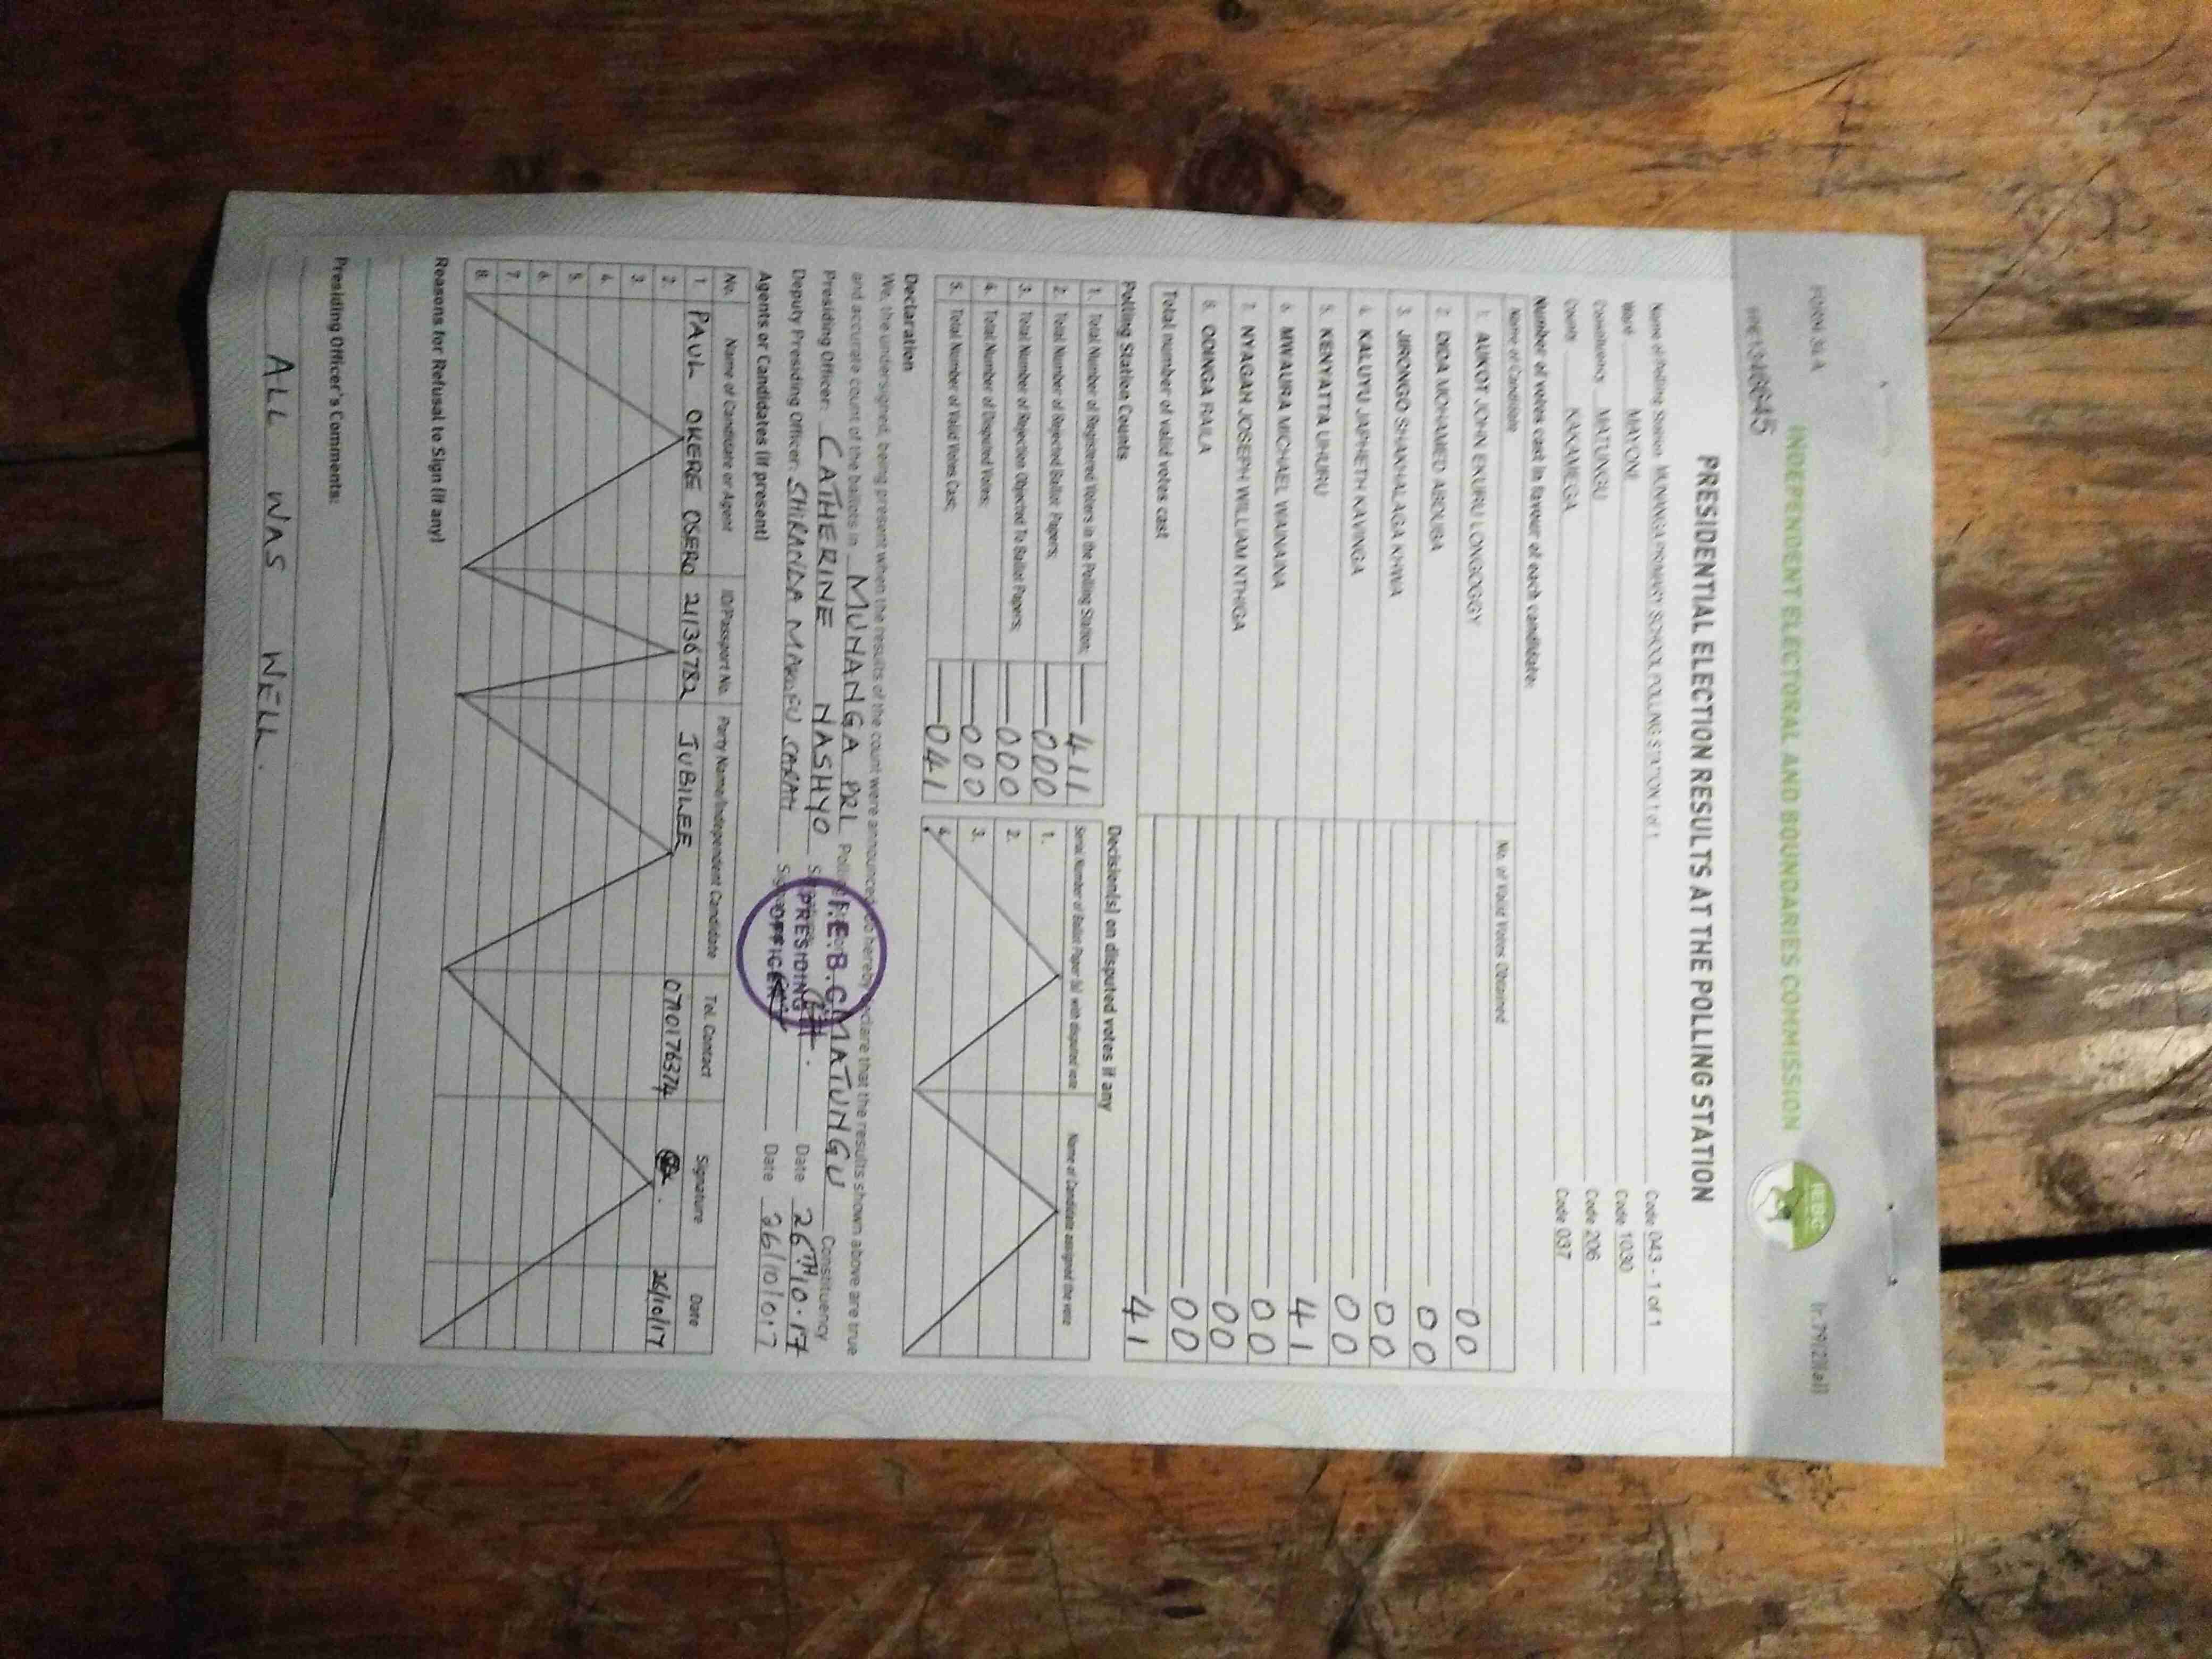 FORM 34 A (r.79(2)(a))
INDEPENDENT ELECTORAL AND BOUNDARIES COMMISSION
IEBC
PRESIDENTIAL ELECTION RESULTS AT THE POLLING STATION
Name of Polling Station MUNANGA PRIMARY SCHOOL POLLING STATION 1 of 1 Code 043 - 1 of 1
Ward MAYONI Code 1030
Constituency MATUNGU Code 206
County KAKAMEGA Code 037
Number of votes cast in favour of each candidate:
Name of Candidate No. of Valid Votes Obtained
1. AUKOT JOHN EKURU LONGOGGY 00
2. DIDA MOHAMED ABDUBA 00
3. JIRONGO SHAKHALAGA KHWA 00
4. KALUYU JAPHETH KAVINGA 00
5. KENYATTA UHURU 41
6. MWAURA MICHAEL WAINAINA 00
7. NYAGAH JOSEPH WILLIAM NTHIGA 00
8. ODINGA RAILA 00
Total number of valid votes cast 41
Polling Station Counts
1. Total Number of Registered Voters in the Polling Station; 411
2. Total Number of Rejected Ballot Papers; 000
3. Total Number of Rejection Objected To Ballot Papers; 000
4. Total Number of Disputed Votes; 000
5. Total Number of Valid Votes Cast; 041
Decision(s) on disputed votes if any
Serial Number of Ballot Paper (s) with disputed vote Name of Candidate assigned the vote
1.
2.
3.
4.
Declaration
We, the undersigned, being present when the results of the count were announced, do hereby declare that the results shown above are true
and accurate count of the ballots in MUNANGA PRI Polling MATUNGU Constituency
Presiding Officer: CATHERINE NASHYO Date 26TH 10.17
Deputy Presiding Officer: SHIRANDA SARAH Date 26/10/017
I.E.B.C
PRESIDING
OFFICER
Agents or Candidates (if present)
No. Name of Candidate or Agent ID/Passport No. Party Name/Independent Candidate Tel. Contact Signature Date
1. PAUL OKERE OSERO 21136782 JUBILEE 0710176374 26/10/17
2.
3.
4.
5.
6.
7.
8.
Reasons for Refusal to Sign (if any)
Presiding Officer's Comments:
ALL WAS WELL.